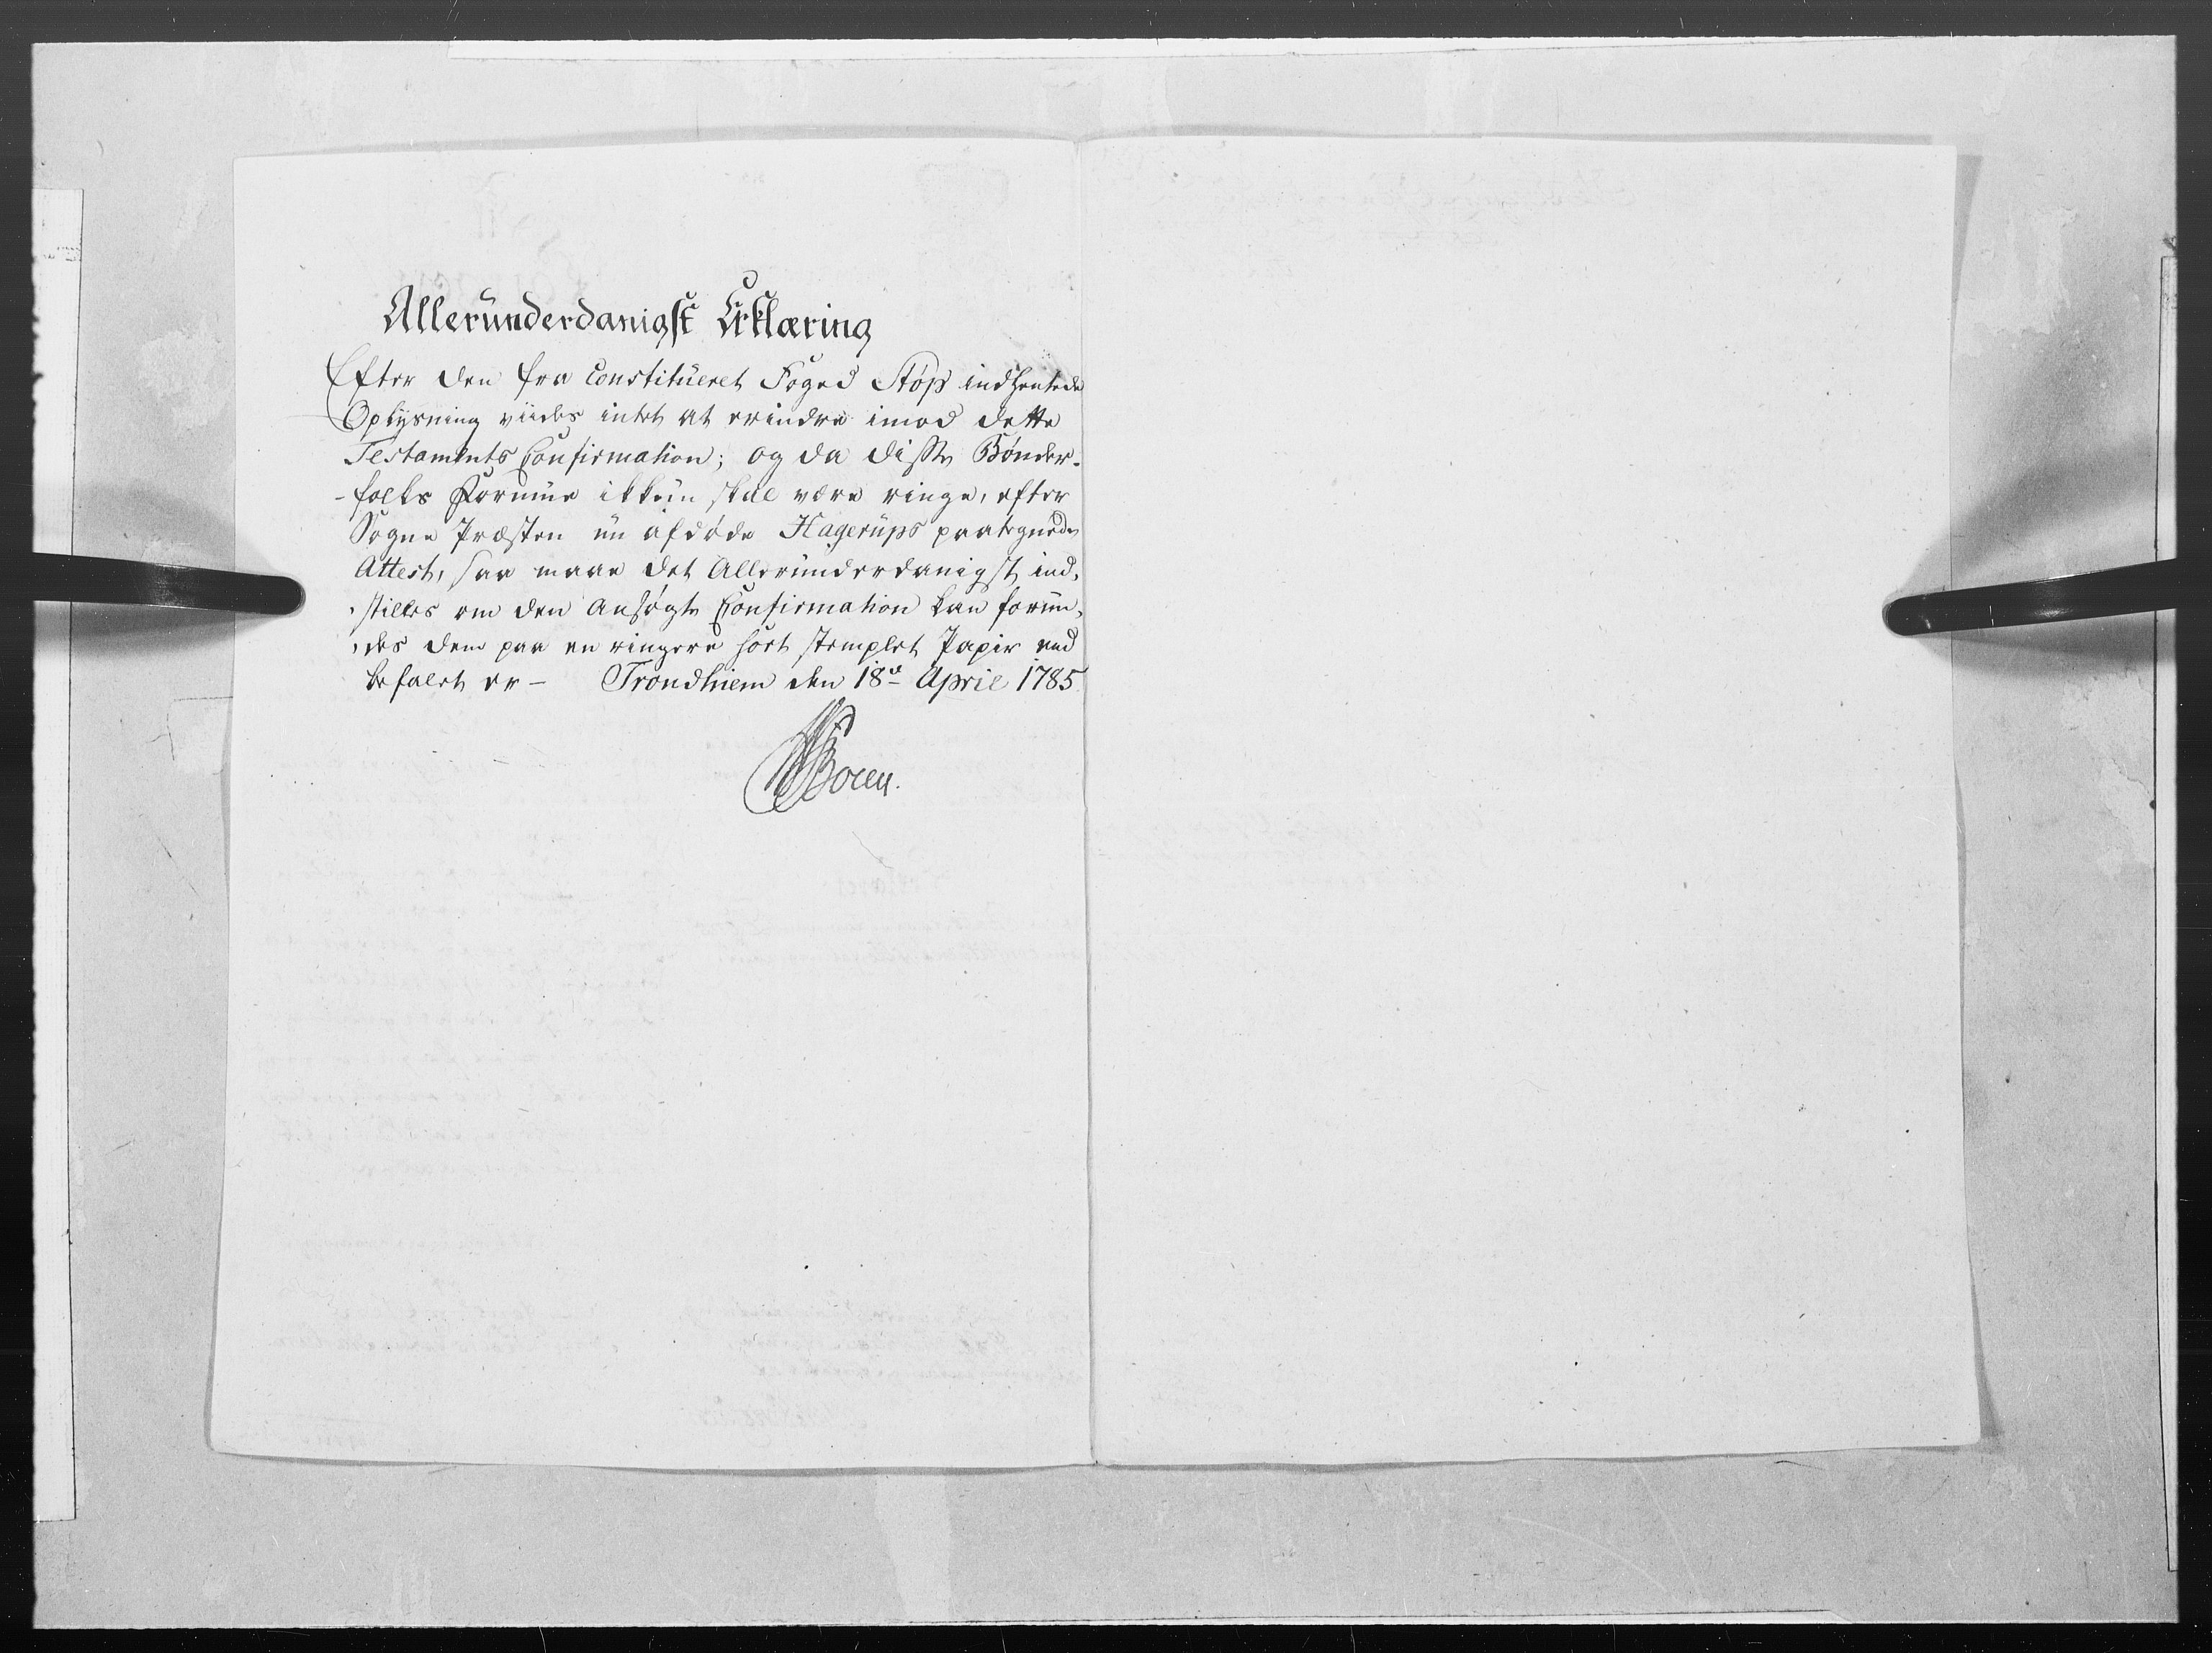 Allerunderdanigst Erklæring
Efter den fra Constitueret Foged Stop indhentede
Oplysning viides intet at erindre imod dette
Testaments Confirmation; og da disse Bønder-
-folks Formue ikkun skal være ringe, efter
Sogne Præsten nu afdøde Hagerups paategnede
Attest, saa maae det Allerunderdanigst ind-
-stilles om den ansøgte Confirmation kan forun-
-des dem paa en ringere sort stemplet Papir end
befalet er - Trondhiem den 18de April 1785